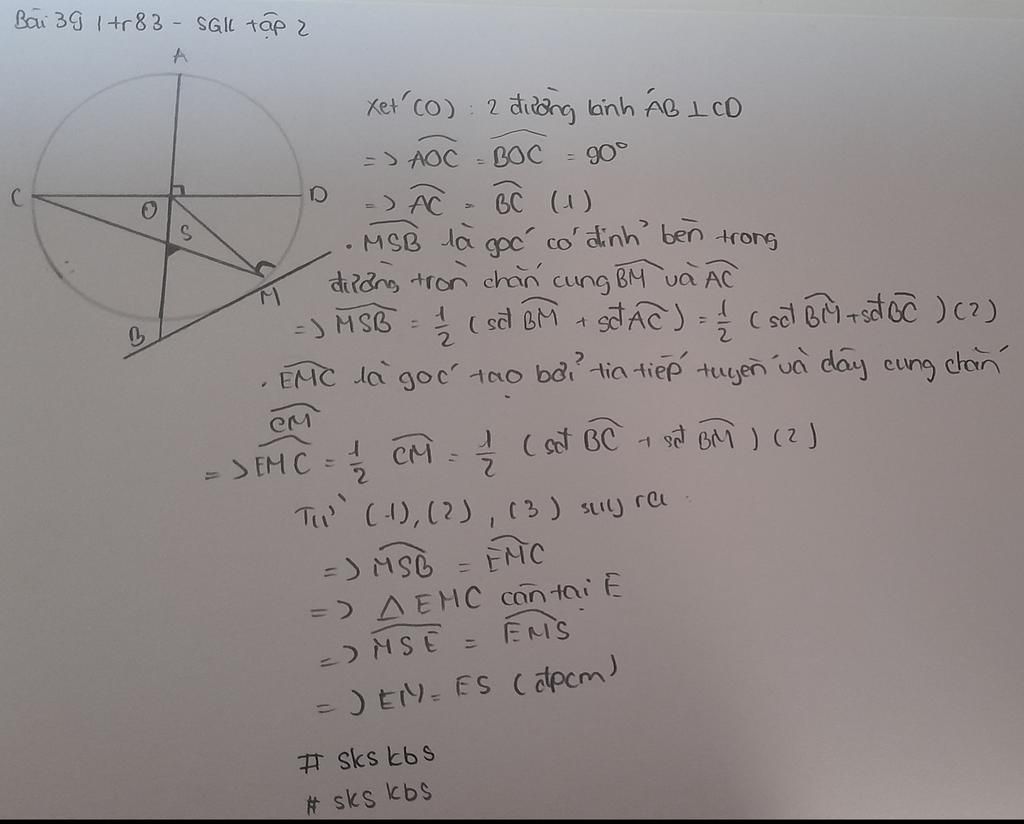 Bài 39 / tr83 - SGK tập 2
A
C
O
D
S
M
B
Xét (O) : 2 đường kính AB ⊥ CD
=> AOC = BOC = 90°
=> AC = BC (1)
. MSB là góc có đỉnh bên trong
đường tròn chắn cung BM và AC
=> MSB = 1/2 (sđ BM + sđ AC) = 1/2 (sđ BM + sđ BC) (2)
. EMC là góc tạo bởi tia tiếp tuyến và dây cung chắn
CM
=> EMC = 1/2 CM = 1/2 (sđ BC + sđ BM) (2)
Từ (1), (2), (3) suy ra
=> MSB = EMC
=> △ EMC cân tại E
=> MSE = EMS
=> EM = ES (đpcm)
# sks kbs
# sks kbs